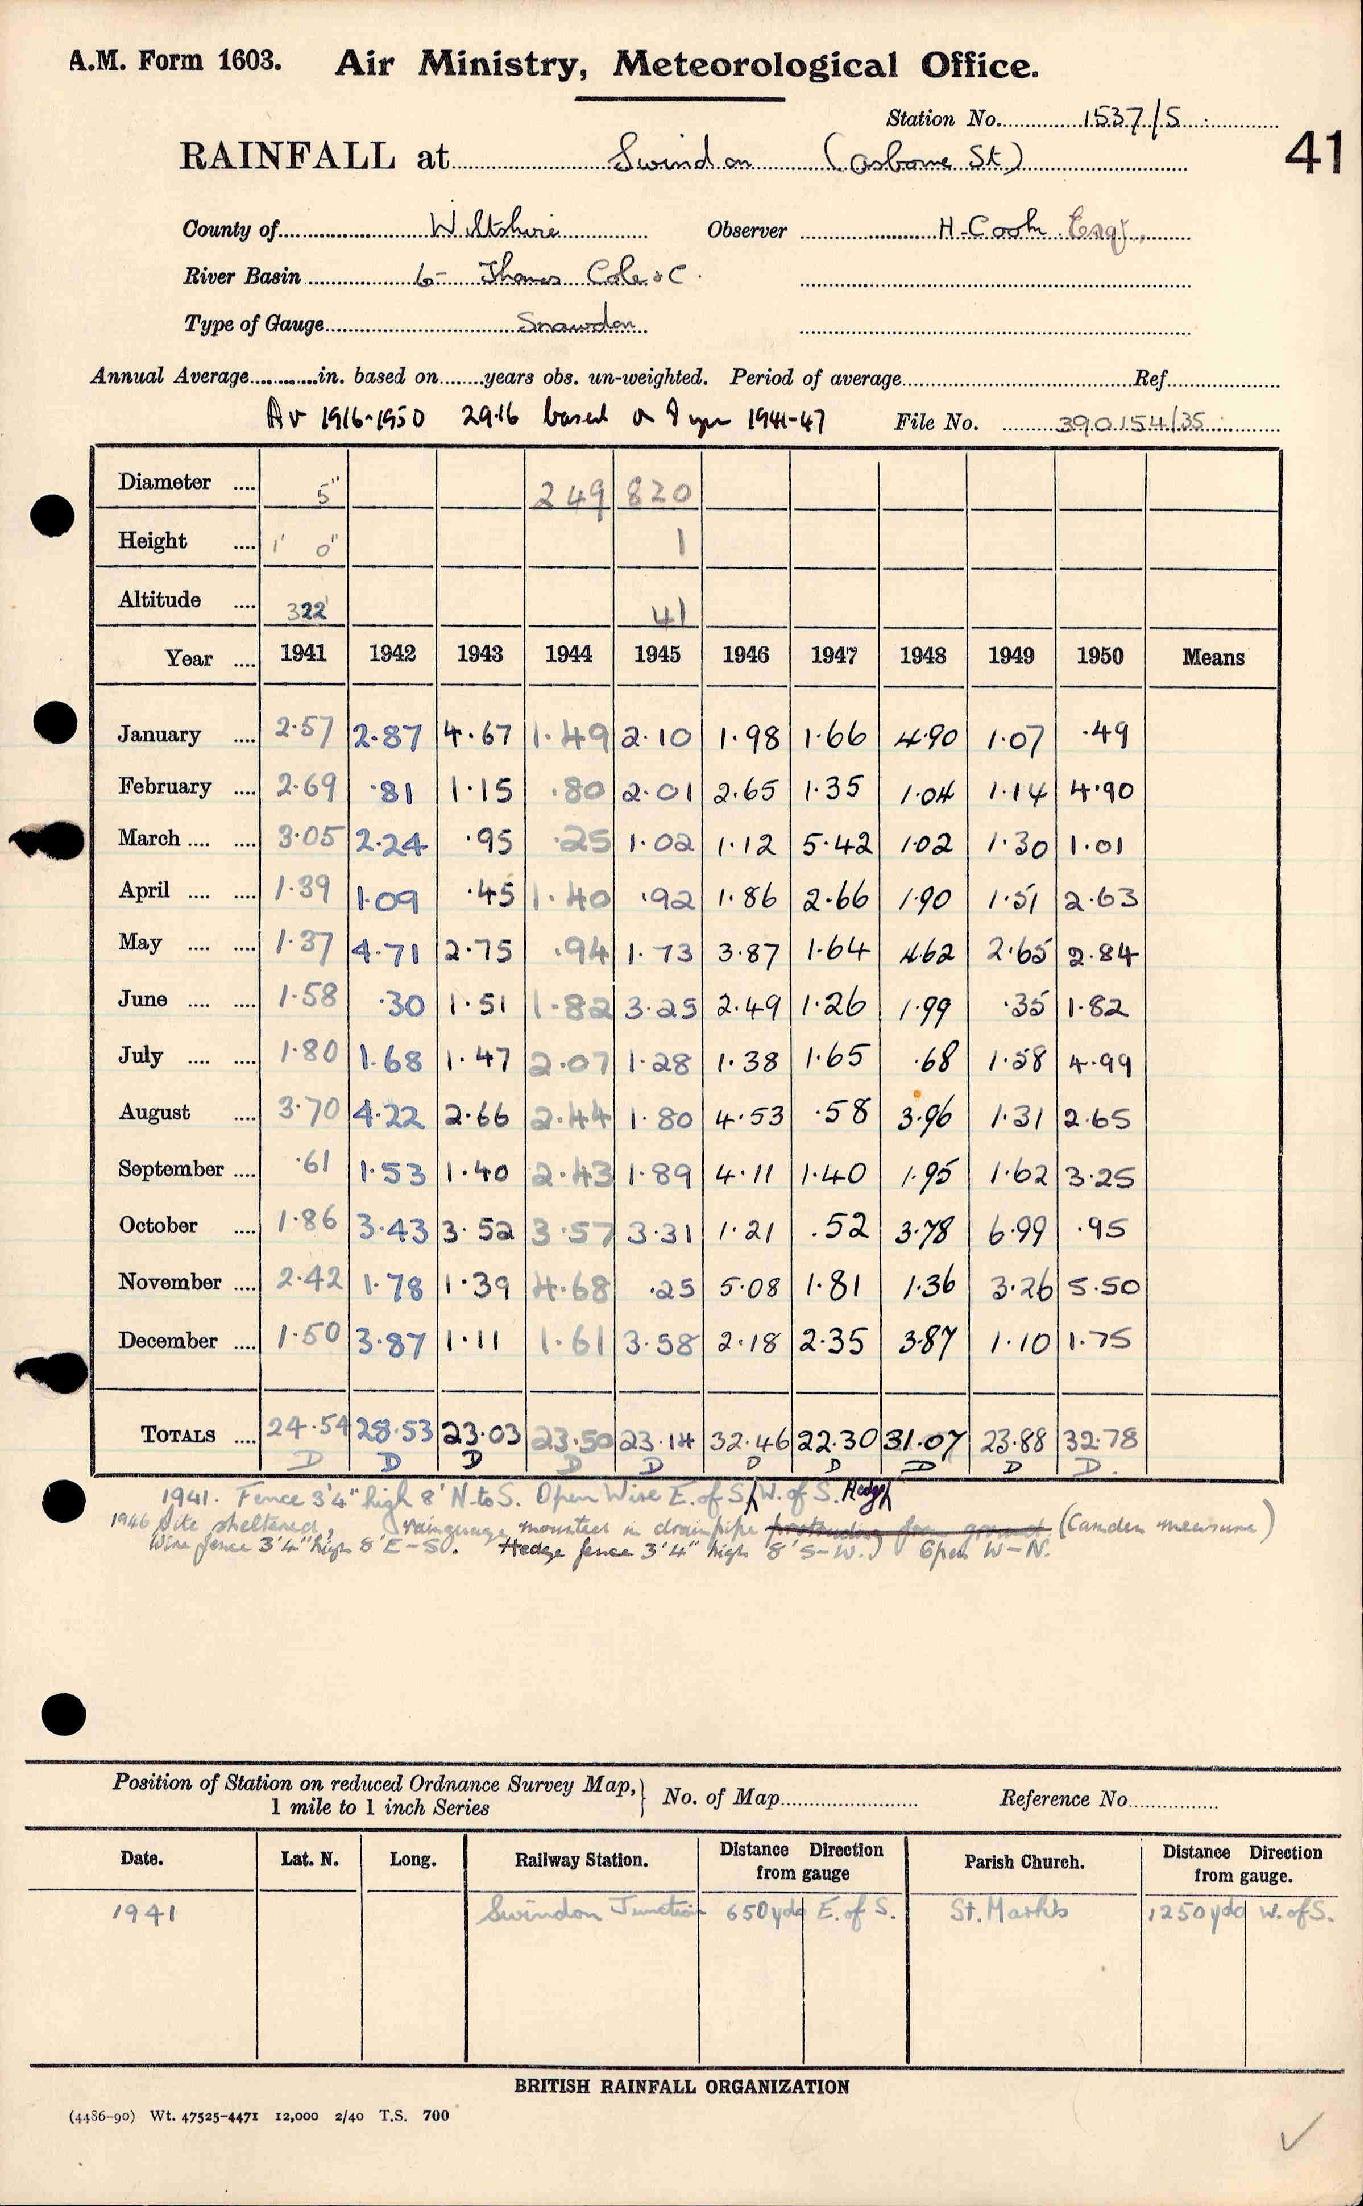 A.M. Form 1603. Air Ministry, Meteorological Office.
Station No. 1537/5
RAINFALL at Swindon (Osborne St.) 41
County of Wiltshire Observer H. Cook Esq.,
River Basin 6- Thames Cole &c.
Type of Gauge Snowdon
Annual Average in. based on years obs. un-weighted. Period of average Ref
Av 1916-1950 29.16 based on 7 yrs 1941-47 File No. 390154/35
Diameter .... 5" 249 820
Height .... 1' 0" 1
Altitude .... 322' 41
Year .... 1941 1942 1943 1944 1945 1946 1947 1948 1949 1950 Means
January .... 2.57 2.87 4.67 1.49 2.10 1.98 1.66 4.90 1.07 .49
February .... 2.69 .81 1.15 .80 2.01 2.65 1.35 1.04 1.14 4.90
March .... .... 3.05 2.24 .95 .25 1.02 1.12 5.42 1.02 1.30 1.01
April .... .... 1.39 1.09 .45 1.40 .92 1.86 2.66 1.90 1.51 2.63
May .... .... 1.37 4.71 2.75 .94 1.73 3.87 1.64 4.62 2.65 2.84
June .... .... 1.58 .30 1.51 1.82 3.25 2.49 1.26 1.99 .35 1.82
July .... .... 1.80 1.68 1.47 2.07 1.28 1.38 1.65 .68 1.58 4.99
August .... 3.70 4.22 2.66 2.44 1.80 4.53 .58 3.96 1.31 2.65
September .... .61 1.53 1.40 2.43 1.89 4.11 1.40 1.95 1.62 3.25
October .... 1.86 3.43 3.52 3.57 3.31 1.21 .52 3.78 6.99 .95
November .... 2.42 1.78 1.39 4.68 .25 5.08 1.81 1.36 3.26 5.50
December .... 1.50 3.87 1.11 1.61 3.58 2.18 2.35 3.87 1.10 1.75
TOTALS .... 24.54 28.53 23.03 23.50 23.14 32.46 22.30 31.07 23.88 32.78
D D D D D D D D D D.
1941. Fence 3'4" high 8' N. to S. Open Wire E. of S. W. of S. Hedge
1946 Site sheltered, rainguage mounted in drainpipe protruding from ground (Camden measure)
Wire fence 3'4" high 8' E-S. Hedge fence 3'4" high 8' S-W. Open W-N.
Position of Station on reduced Ordnance Survey Map, 1 mile to 1 inch Series } No. of Map Reference No
Date. Lat. N. Long. Railway Station. Distance Direction from gauge Parish Church. Distance Direction from gauge.
1941 Swindon Junction 650 yds E. of S. St. Mark's 1250 yds W. of S.
BRITISH RAINFALL ORGANIZATION
(4486-90) Wt. 47525-4471 12,000 2/40 T.S. 700